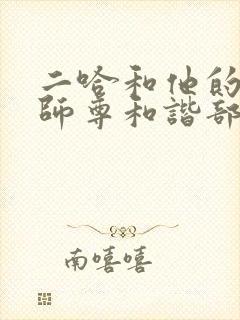 二哈和他的
師尊和諧部
南嘻嘻